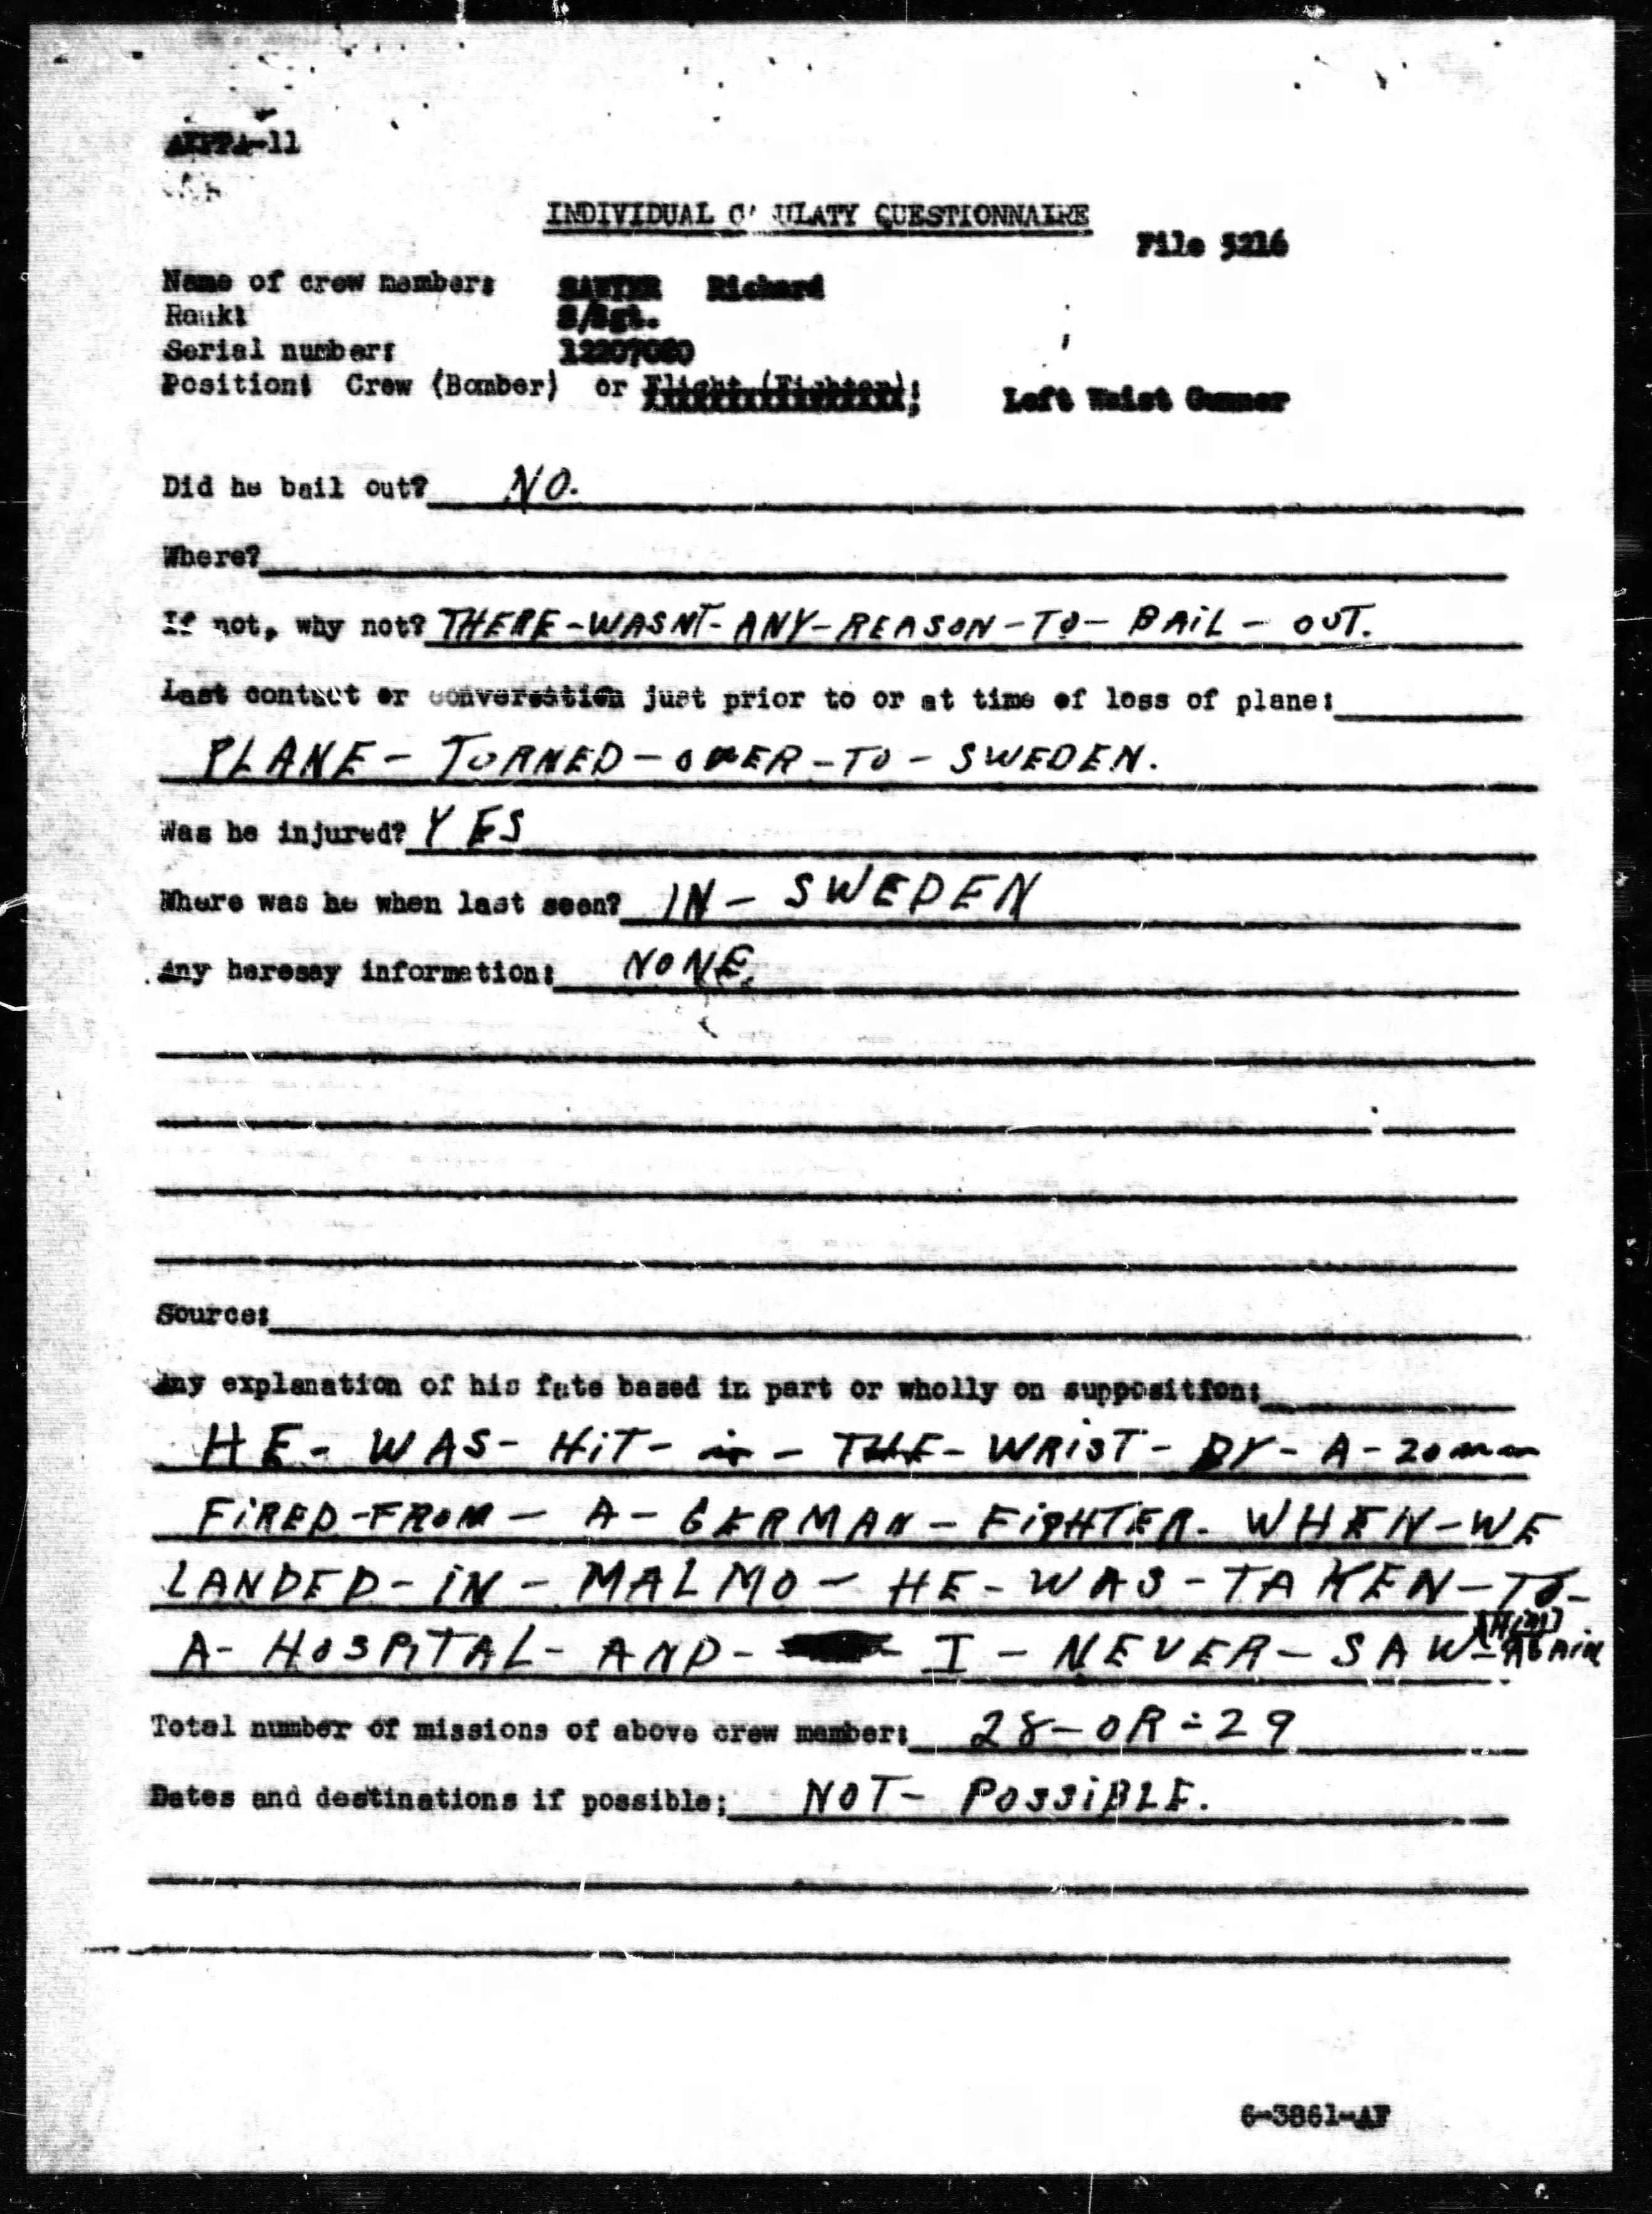 -11
INDIVIDUAL C ULATY QUESTIONNAIRE
File 5216
Name of crew member: Richard
Rank: S/Sgt.
Serial number: 12207080
Position: Crew (Bomber) or Flight (Fighter): Left Waist Gunner
Did he bail out? NO.
Where?
If not, why not? THERE-WASNT-ANY-REASON-TO-BAIL-OUT.
Last contact or conversation just prior to or at time of loss of plane:
PLANE-TURNED-OVER-TO-SWEDEN.
Was he injured? YES
Where was he when last seen? IN-SWEDEN
Any heresay information: NONE.
Source:
Any explanation of his fate based in part or wholly on supposition:
HE-WAS-HiT-in-THE-WRIST-BY-A-20mm
FiRED-FROM-A-GERMAN-FiGHTER. WHEN-WE
LANDED-iN-MALMO-HE-WAS-TAKEN-TO-
A-HOSPiTAL-AND- I-NEVER-SAW-HIM AGAiN
Total number of missions of above crew member: 28-OR-29
Dates and destinations if possible; NOT-POSSiBLE.
6-3861-AF